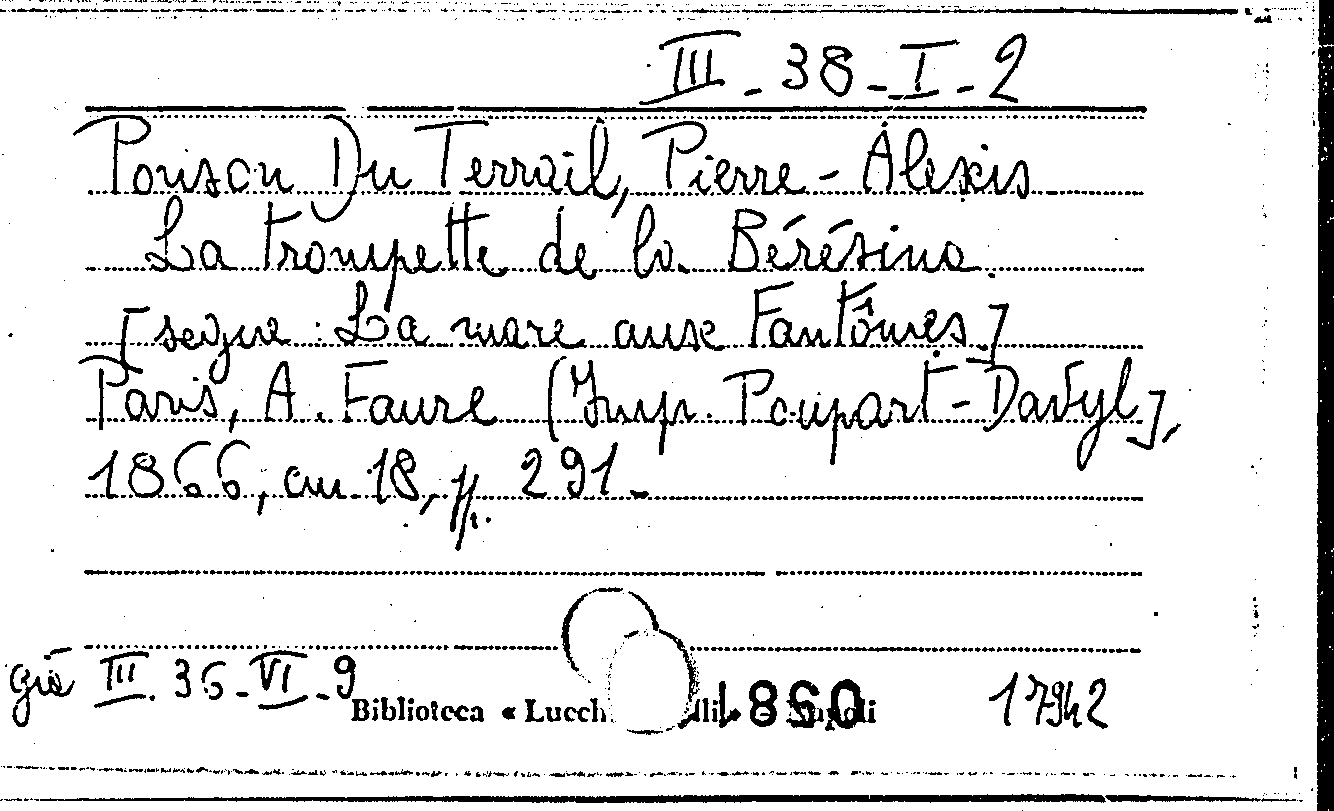 III - 38 - I - 2
Ponson Du Terrail, Pierre - Alexis
La trompette de la Bérésina.
[segue: La mare aux Fantômes.]
Paris, A. Faure (Imp. Poupart - Davyl],
1866, cm. 18, pp. 291.
già III. 36 - VI - 9
Biblioteca « Lucch lli» - Napoli
17942